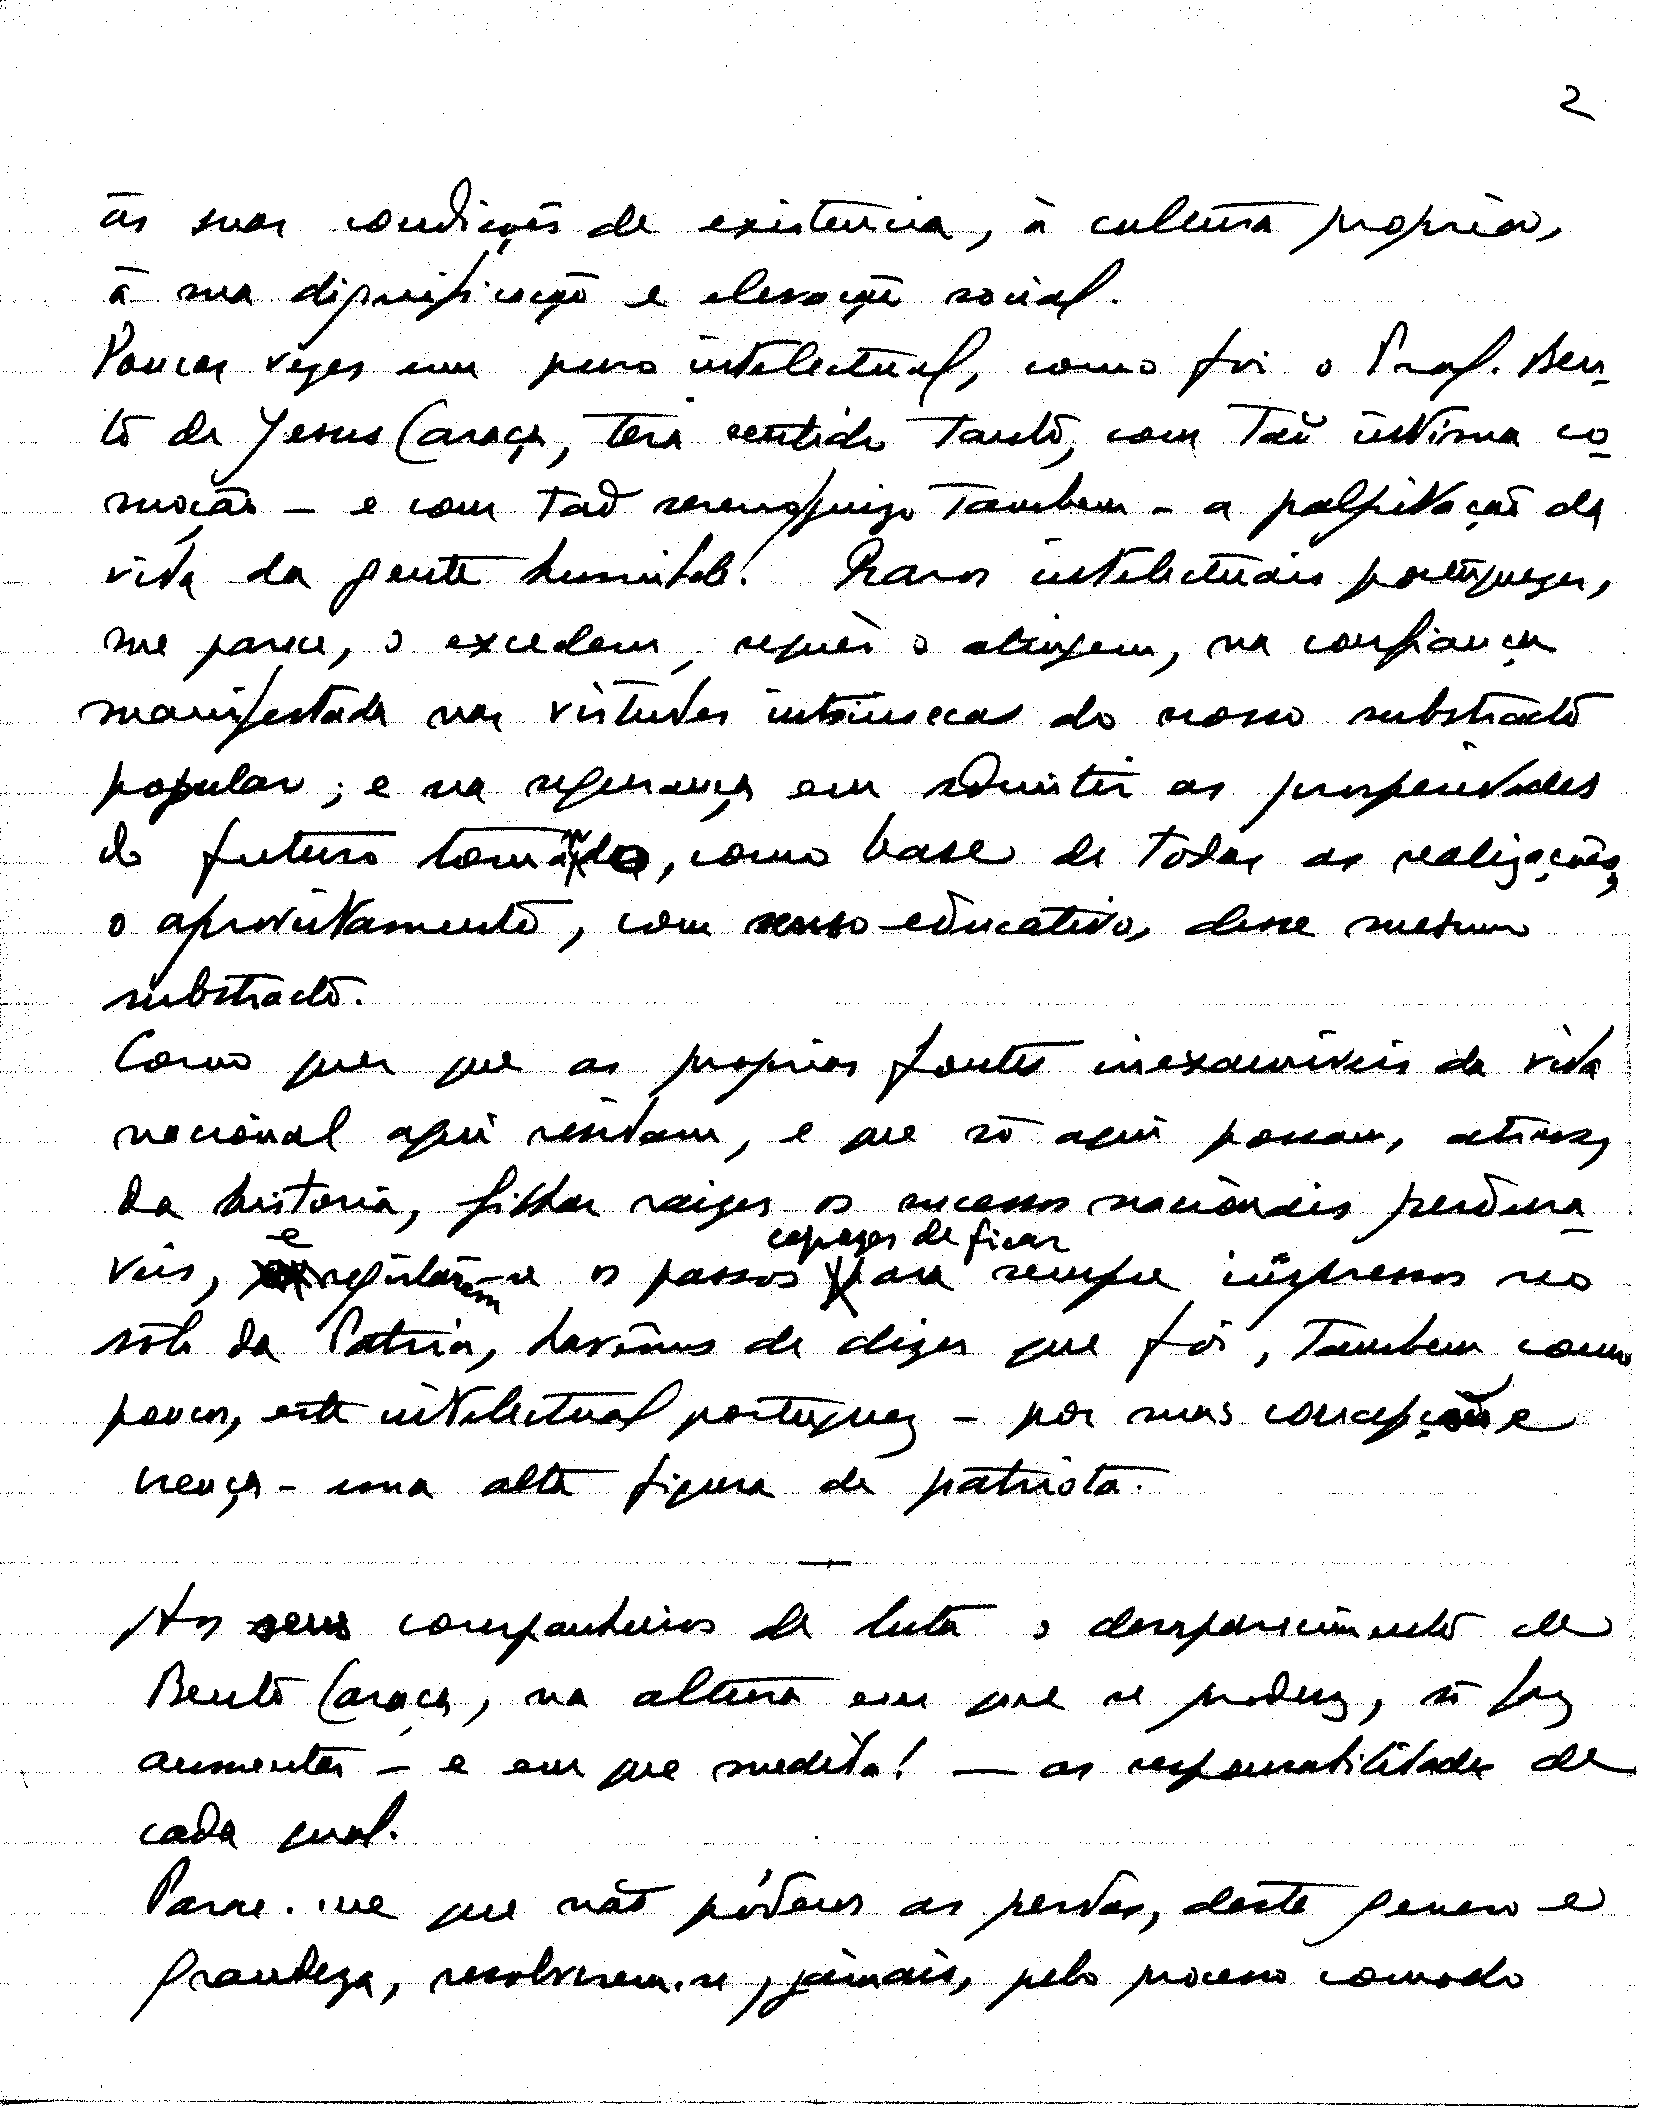 2
ás suas condições de existencia, á cultura propria,
á sua dignificação e elevação social.
Poucas vezes um puro intelectual, como foi o Prof. Ben-
to de Jesus Caraça, terá sentido tanto, com tão intima co-
moção – e com tão sereno juizo tambem – a palpitação da
vida da gente humilde. Raros intelectuais portuguezes,
me parece, o excedem, sequer o atingem, na confiança
manifestada nas virtudes intrinsecas do nosso substracto
popular; e na segurança em admitir as prosperidades
do futuro tomando, como base de todas as realizações,
o aproveitamento, com senso educativo, desse mesmo
substracto.
Como quer que as proprias fontes inexauriveis da vida
nacional aqui residam, e que só aqui possam, atravez
da historia, filhar raizes os sucessos nacionais perdura-
e capazes de ficar
veis, registarem-se os passos para sempre impressos no
sólo da Patria, havêmos de dizer que foi, tambem como
poucos, este intelectual portuguez – por suas concepção e
crença – uma alta figura de patriota.
—
Aos seus companheiros de luta o desaparecimento de
Bento Caraça, na altura em que se produz, só faz
aumentar – e em que medida! — as responsabilidades de
cada qual.
Parece-me que não pódem as perdas, deste genero e
grandeza, resolverem-se, jámais, pelo processo comodo